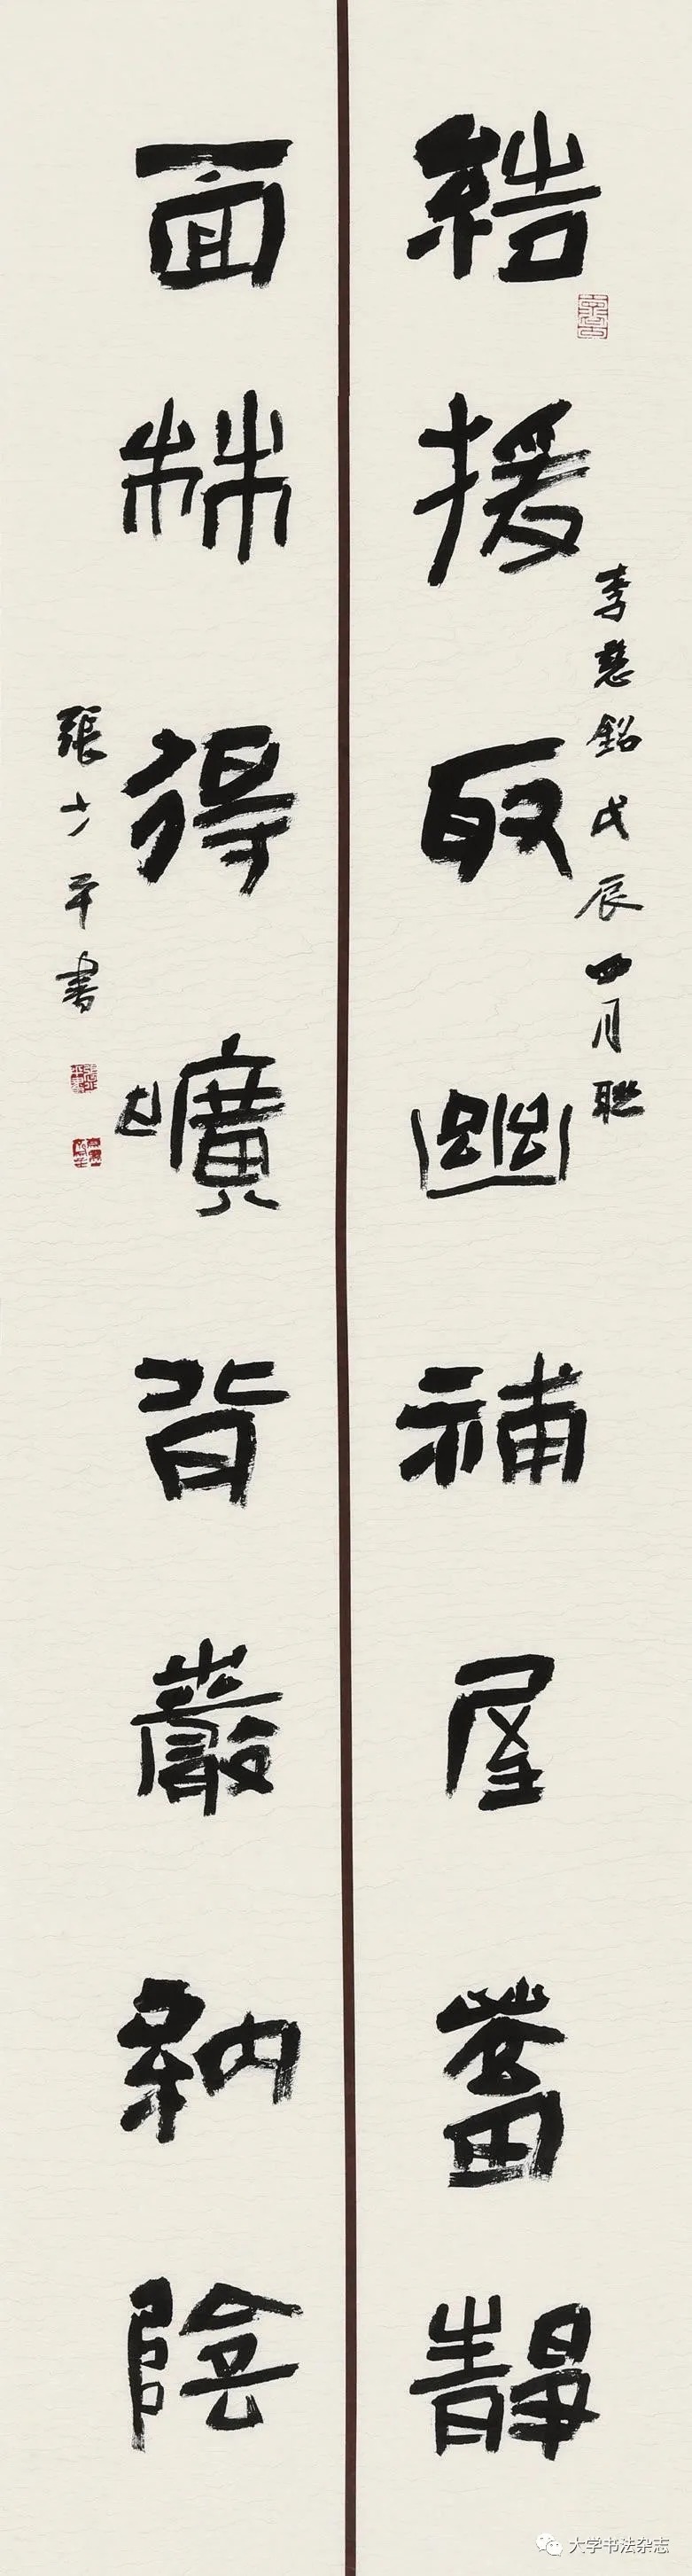 結援取幽補屋蓄靜
李慈銘戊辰四月聯
面林得曠背巖納陰
張少平書
大学书法杂志